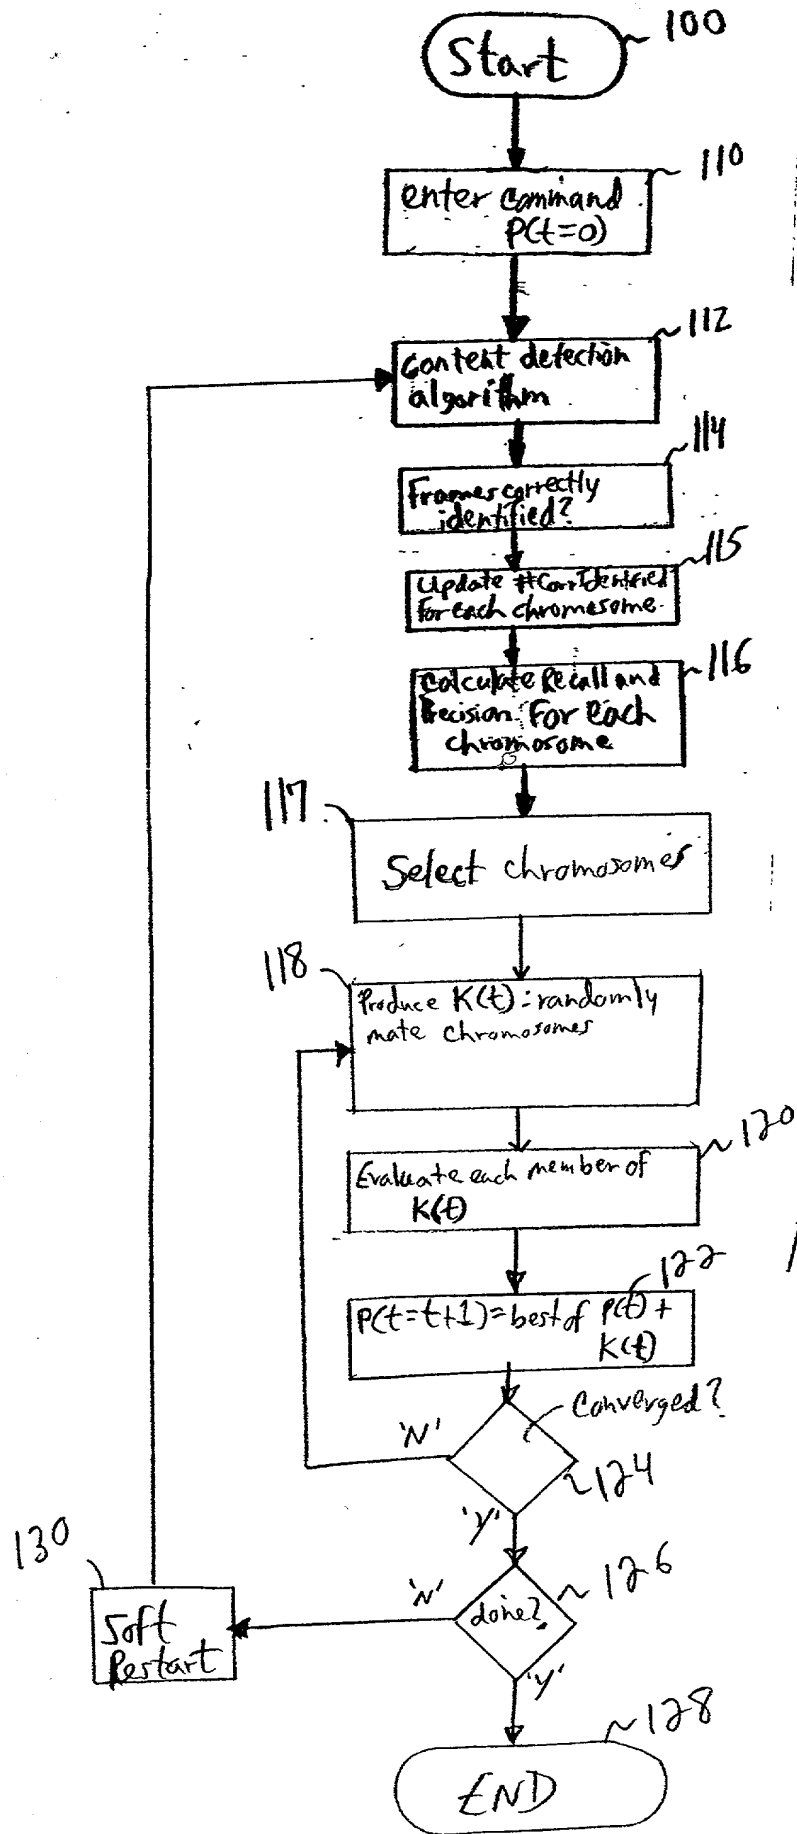 Start
100
110
enter command
P(t=0)
112
Content detection
algorithm
114
Frames correctly
identified?
115
Update #CorrIdentified
for each chromosome.
116
Calculate Recall and
Precision For Each
chromosome
117
Select chromosomes
118
Produce K(t): randomly
mate chromosomes
120
Evaluate each member of
K(t)
122
P(t=t+1)=best of P(t)+
K(t)
Converged?
'N'
124
'Y'
130
126
'N'
done?
Soft
Restart
'Y'
128
END